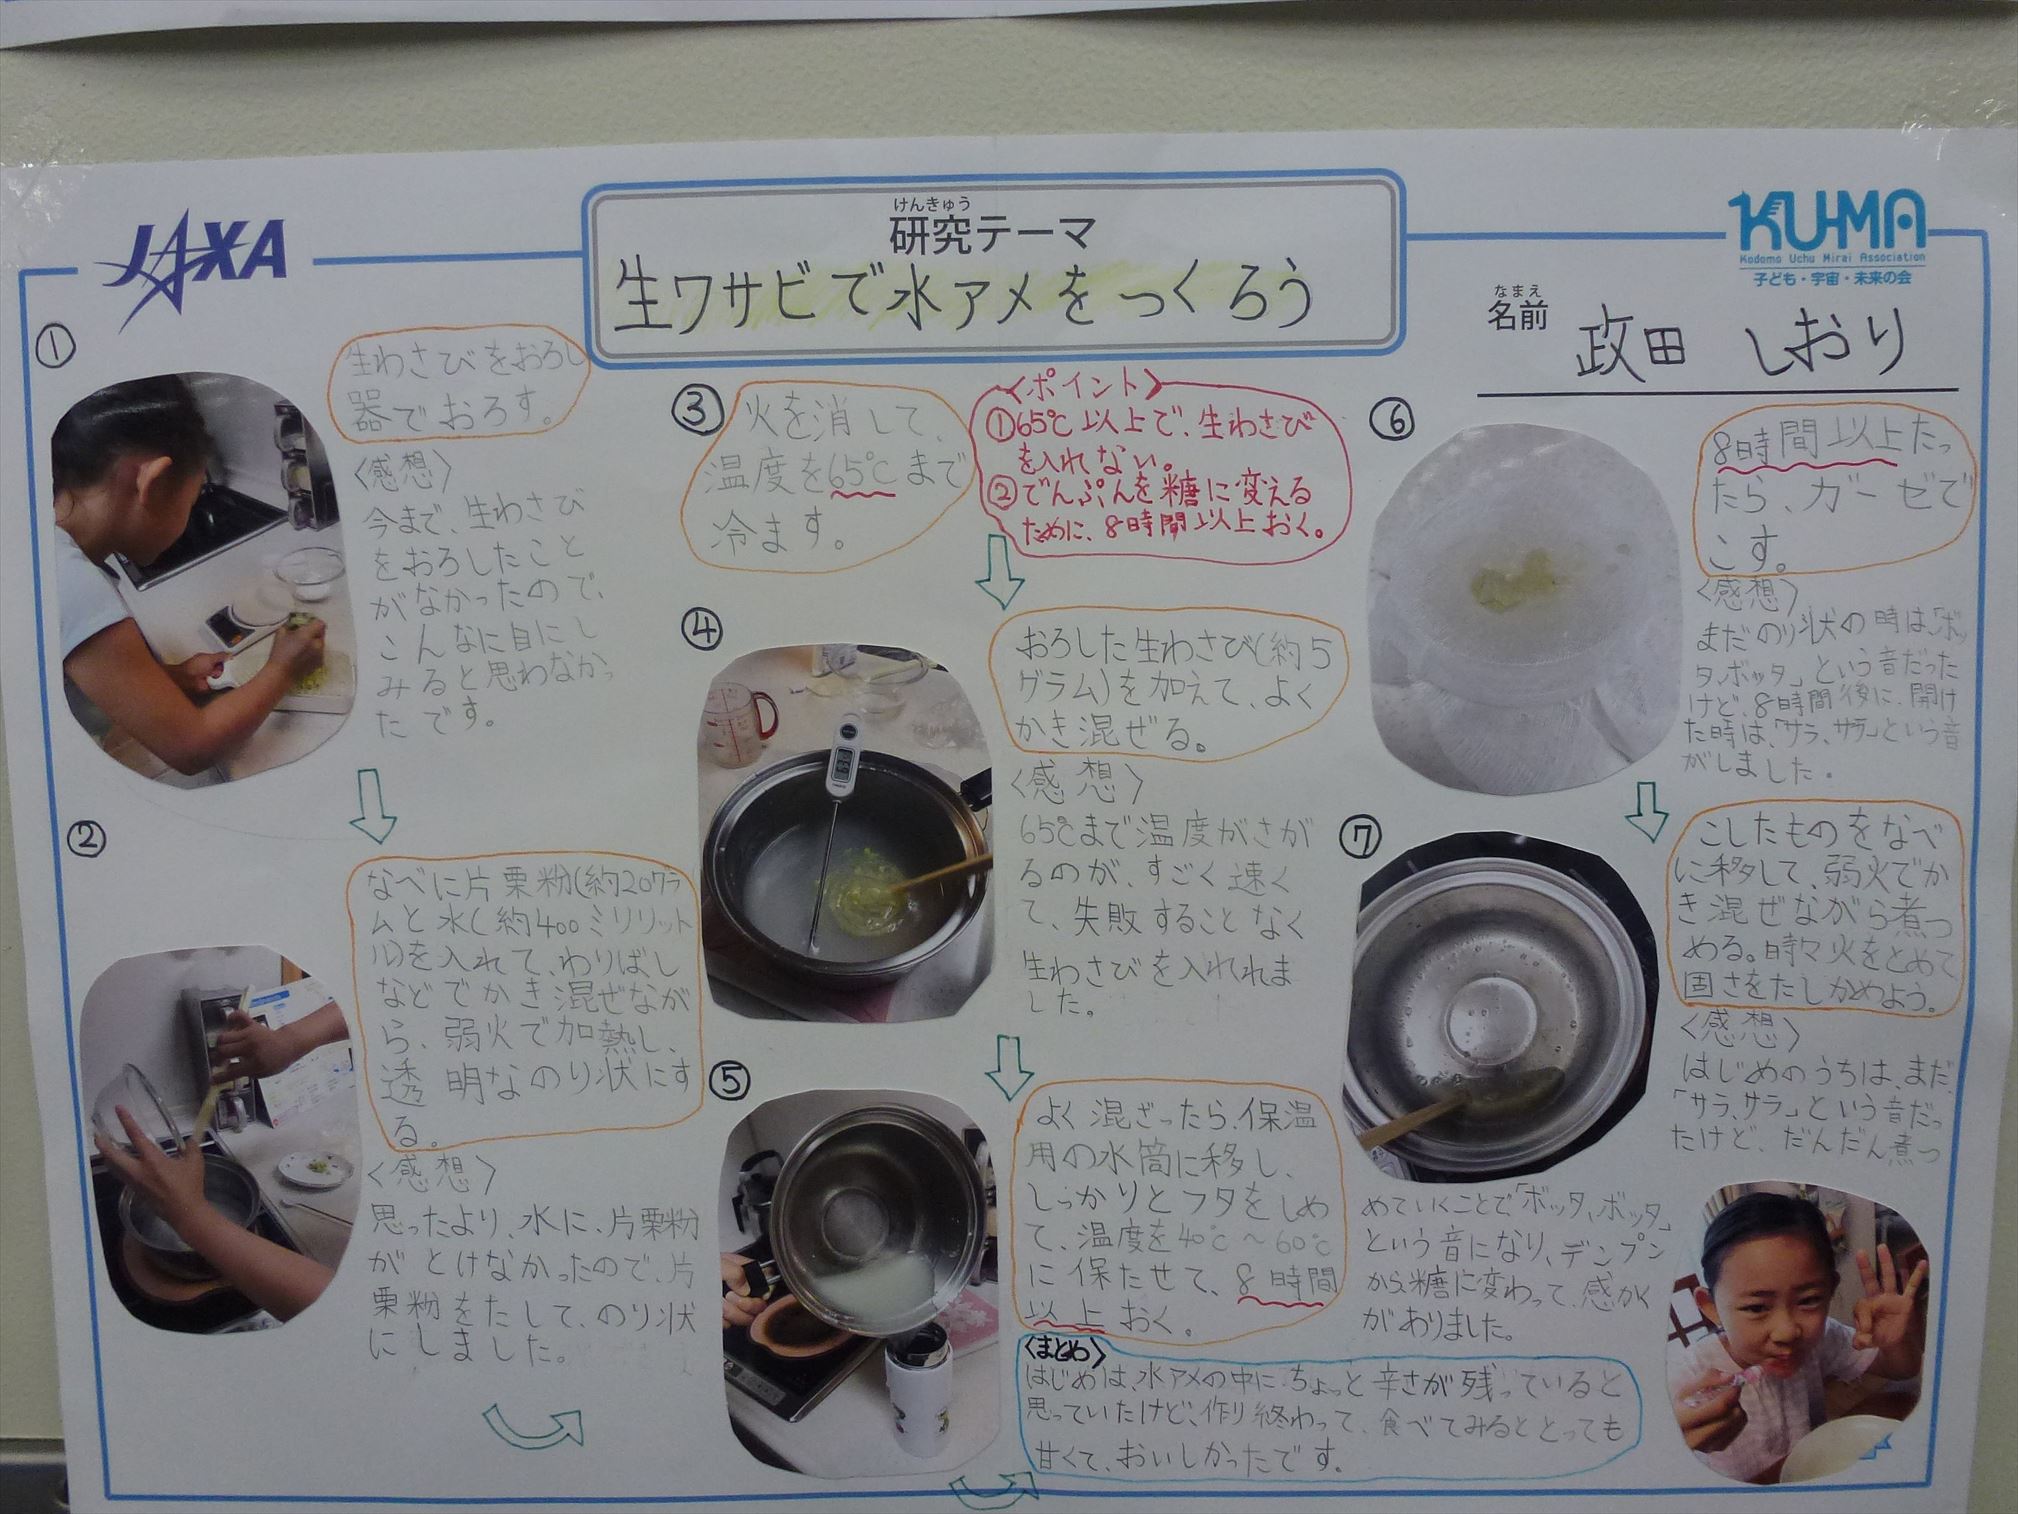 JAXA
けんきゅう
研究テーマ
生ワサビで水アメをつくろう
KU-MA
Kodomo Uchu Mirai Association
子ども・宇宙・未来の会
なまえ
名前 政田 しおり
①
生わさびをおろし
器でおろす。
〈感想〉
今まで、生わさび
をおろしたこと
がなかったので、
こんなに目にし
みると思わなかっ
たです。
②
なべに片栗粉(約20グラ
ムと水(約400ミリリット
ル)を入れて、わりばし
などでかき混ぜなが
ら、弱火で加熱し、
透明なのり状にす
る。
〈感想〉
思ったより、水に、片栗粉
がとけなかったので、片
栗粉をたして、のり状
にしました。
③
火を消して、
温度を65℃まで
冷ます。
〈ポイント〉
①65℃以上で、生わさび
を入れない。
②でんぷんを糖に変える
ために、8時間以上おく。
④
おろした生わさび(約5
グラム)を加えて、よく
かき混ぜる。
〈感想〉
65℃まで温度がさが
るのが、すごく速く
て、失敗することなく
生わさびを入れれま
した。
⑤
よく混ざったら、保温
用の水筒に移し、
しっかりとフタをしめ
て、温度を40℃〜60℃
に保たせて、8時間
以上おく。
⑥
8時間以上たっ
たら、ガーゼで
こす。
〈感想〉
まだのり状の時は、「ボッ
タ、ボッタ」という音だった
けど、8時間後に、開け
た時は、「サラ、サラ」という音
がしました。
⑦
こしたものをなべ
に移して、弱火でか
き混ぜながら煮つ
める。時々火をとめて
固さをたしかめよう。
〈感想〉
はじめのうちは、まだ、
「サラ、サラ」という音だっ
たけど、だんだん煮つ
めていくことで、「ボッタ、ボッタ」
という音になり、デンプン
から糖に変わって、感かく
がありました。
〈まとめ〉
はじめは、水アメの中に、ちょっと辛さが残っていると
思っていたけど、作り終わって、食べてみるととっても
甘くて、おいしかったです。